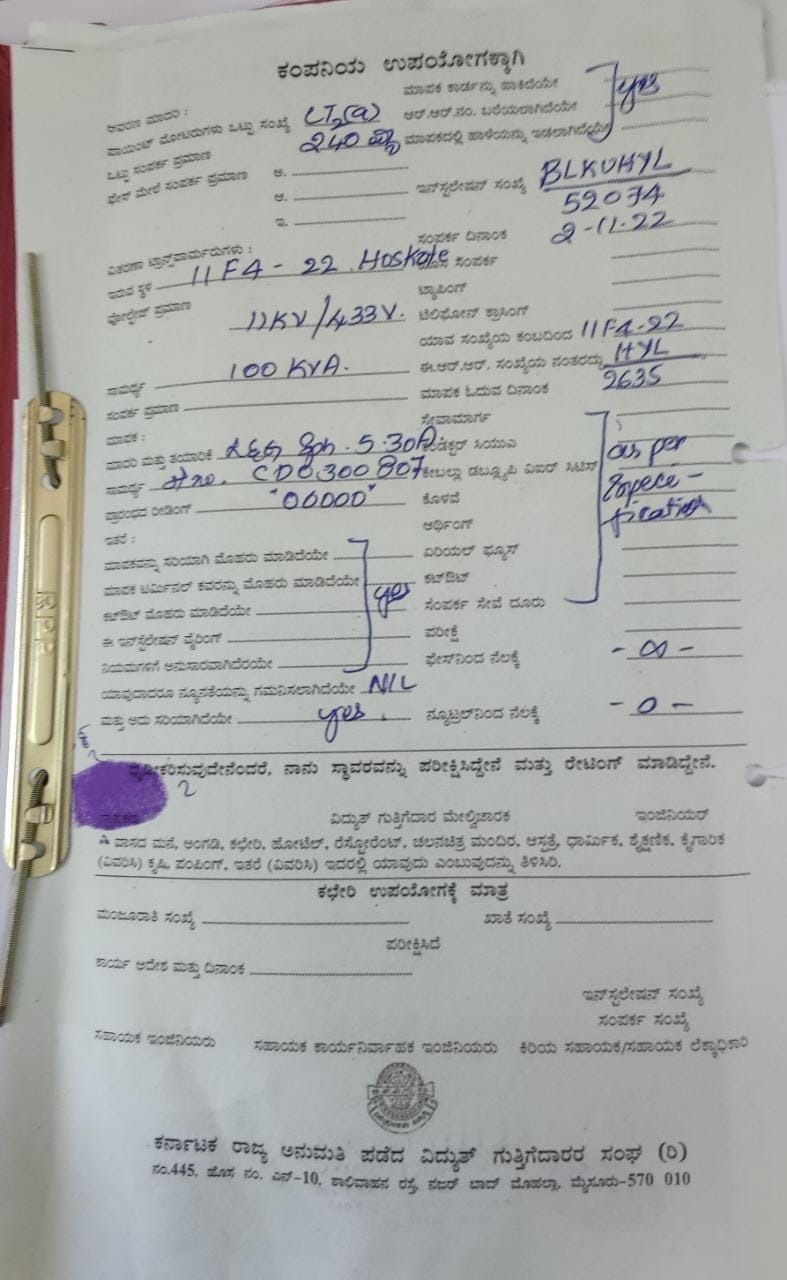 ಕಂಪನಿಯ ಉಪಯೋಗಕ್ಕಾಗಿ
ಮಾಪಕ ಕಾರ್ಡನ್ನು ಹಾಕಿದೆಯೇ
ಆವರಣ ಮಾದರಿ : LT2(a) ಆರ್.ಆರ್.ನಂ. ಬರೆಯಲಾಗಿದೆಯೇ yes
ಪಾಯಿಂಟ್ ಮೋಟರುಗಳು ಒಟ್ಟು ಸಂಖ್ಯೆ 240 ಮಾಪಕದಲ್ಲಿ ಹಾಳೆಯನ್ನು ಇಡಲಾಗಿದೆಯೇ
ಒಟ್ಟು ಸಂಪರ್ಕ ಪ್ರಮಾಣ
ಫೇಸ್ ಮೇಲೆ ಸಂಪರ್ಕ ಪ್ರಮಾಣ ಅ. ಇನ್‌ಸ್ಟಲೇಷನ್ ಸಂಖ್ಯೆ BLKUHYL
ಆ. 52074
ಇ. ಸಂಪರ್ಕ ದಿನಾಂಕ 2-11-22
ವಿತರಣಾ ಟ್ರಾನ್ಸ್‌ಫಾರ್ಮರುಗಳು :
ಇರುವ ಸ್ಥಳ 11F4-22 Hoskote ಸಂಪರ್ಕ
ಟ್ಯಾಪಿಂಗ್
ವೋಲ್ಟೇಜ್ ಪ್ರಮಾಣ 11KV/433V. ಟೆಲಿಫೋನ್ ಕ್ರಾಸಿಂಗ್
ಯಾವ ಸಂಖ್ಯೆಯ ಕಂಬದಿಂದ 11F4-22
ಸಾಮರ್ಥ್ಯ 100 KVA. ಈ.ಆರ್.ಆರ್. ಸಂಖ್ಯೆಯ ನಂತರದ್ದು HYL
ಸಂಪರ್ಕ ಪ್ರಮಾಣ ಮಾಪಕ ಓದುವ ದಿನಾಂಕ 2635
ಮಾಪಕ : ಸೇವಾಮಾರ್ಗ
ಮಾದರಿ ಮತ್ತು ತಯಾರಿಕೆ L&G 5-30A ಕಂಡಕ್ಟರ್ ಸಿಯುಎ as per
ಸಾಮರ್ಥ್ಯ CD0300807 ಕೇಬಲ್ಲು ಡಬ್ಲ್ಯೂಪಿ ವಿಐಆರ್ ಸಿಟಿಸ್ speci-
ಪ್ರಾರಂಭದ ರೀಡಿಂಗ್ "00000" ಕೊಳವೆ fication
ಇತರೆ : ಆರ್ಥಿಂಗ್
ಮಾಪಕವನ್ನು ಸರಿಯಾಗಿ ಮೊಹರು ಮಾಡಿದೆಯೇ ಏರಿಯಲ್ ಫ್ಯೂಸ್
ಮಾಪಕ ಟರ್ಮಿನಲ್ ಕವರನ್ನು ಮೊಹರು ಮಾಡಿದೆಯೇ yes ಕಟ್‌ಔಟ್
ಕಟ್‌ಔಟ್ ಮೊಹರು ಮಾಡಿದೆಯೇ ಸಂಪರ್ಕ ಸೇವೆ ದೂರು
ಈ ಇನ್‌ಸ್ಟಲೇಷನ್ ವೈರಿಂಗ್ ಪರೀಕ್ಷೆ
ನಿಯಮಗಳಿಗೆ ಅನುಸಾರವಾಗಿದೆರಯೇ ಫೇಸ್‌ನಿಂದ ನೆಲಕ್ಕೆ - ∞ -
ಯಾವುದಾದರೂ ನ್ಯೂನತೆಯನ್ನು ಗಮನಿಸಲಾಗಿದೆಯೇ NIL
ಮತ್ತು ಅದು ಸರಿಯಾಗಿದೆಯೇ yes. ನ್ಯೂಟ್ರಲ್‌ನಿಂದ ನೆಲಕ್ಕೆ - 0 -
ದೃಢೀಕರಿಸುವುದೇನೆಂದರೆ, ನಾನು ಸ್ಥಾವರವನ್ನು ಪರೀಕ್ಷಿಸಿದ್ದೇನೆ ಮತ್ತು ರೇಟಿಂಗ್ ಮಾಡಿದ್ದೇನೆ.
ವಿದ್ಯುತ್ ಗುತ್ತಿಗೆದಾರ ಮೇಲ್ವಿಚಾರಕ ಇಂಜಿನಿಯರ್
ವಾಸದ ಮನೆ, ಅಂಗಡಿ, ಕಛೇರಿ, ಹೋಟೆಲ್, ರೆಸ್ಟೋರೆಂಟ್, ಚಲನಚಿತ್ರ ಮಂದಿರ, ಆಸ್ಪತ್ರೆ, ಧಾರ್ಮಿಕ, ಶೈಕ್ಷಣಿಕ, ಕೈಗಾರಿಕ
(ವಿವರಿಸಿ) ಕೃಷಿ, ಪಂಪಿಂಗ್, ಇತರೆ (ವಿವರಿಸಿ) ಇದರಲ್ಲಿ ಯಾವುದು ಎಂಬುವುದನ್ನು ತಿಳಿಸಿರಿ.
ಕಛೇರಿ ಉಪಯೋಗಕ್ಕೆ ಮಾತ್ರ
ಮಂಜೂರಾತಿ ಸಂಖ್ಯೆ ಖಾತೆ ಸಂಖ್ಯೆ
ಪರೀಕ್ಷಿಸಿದೆ
ಕಾರ್ಯ ಆದೇಶ ಮತ್ತು ದಿನಾಂಕ
ಇನ್‌ಸ್ಟಲೇಷನ್ ಸಂಖ್ಯೆ
ಸಂಪರ್ಕ ಸಂಖ್ಯೆ
ಸಹಾಯಕ ಇಂಜಿನಿಯರು ಸಹಾಯಕ ಕಾರ್ಯನಿರ್ವಾಹಕ ಇಂಜಿನಿಯರು ಕಿರಿಯ ಸಹಾಯಕ/ಸಹಾಯಕ ಲೆಕ್ಕಾಧಿಕಾರಿ
ಕರ್ನಾಟಕ ರಾಜ್ಯ ಅನುಮತಿ ಪಡೆದ ವಿದ್ಯುತ್ ಗುತ್ತಿಗೆದಾರರ ಸಂಘ (ರಿ)
ನಂ.445, ಹೊಸ ನಂ. ಎನ್-10, ಶಾಲಿವಾಹನ ರಸ್ತೆ, ನಜರ್ ಬಾದ್ ಮೊಹಲ್ಲಾ, ಮೈಸೂರು-570 010